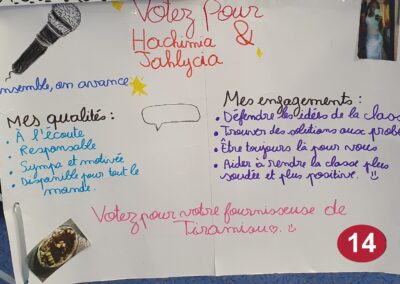 Votez Pour
Hachimia &
Jahlycia
ensemble, on avance
Mes qualités :
• À l'écoute
• Responsable
• Sympa et motivée
• Disponible pour tout le
monde.
Mes engagements :
• Défendre les idées de la class
• Trouver des solutions aux prob
• Être toujours là pour vous
• Aider à rendre la classe plus
soudée et plus positive. :)
Votez pour votre fournisseuse de
Tiramisu♡. :)
14